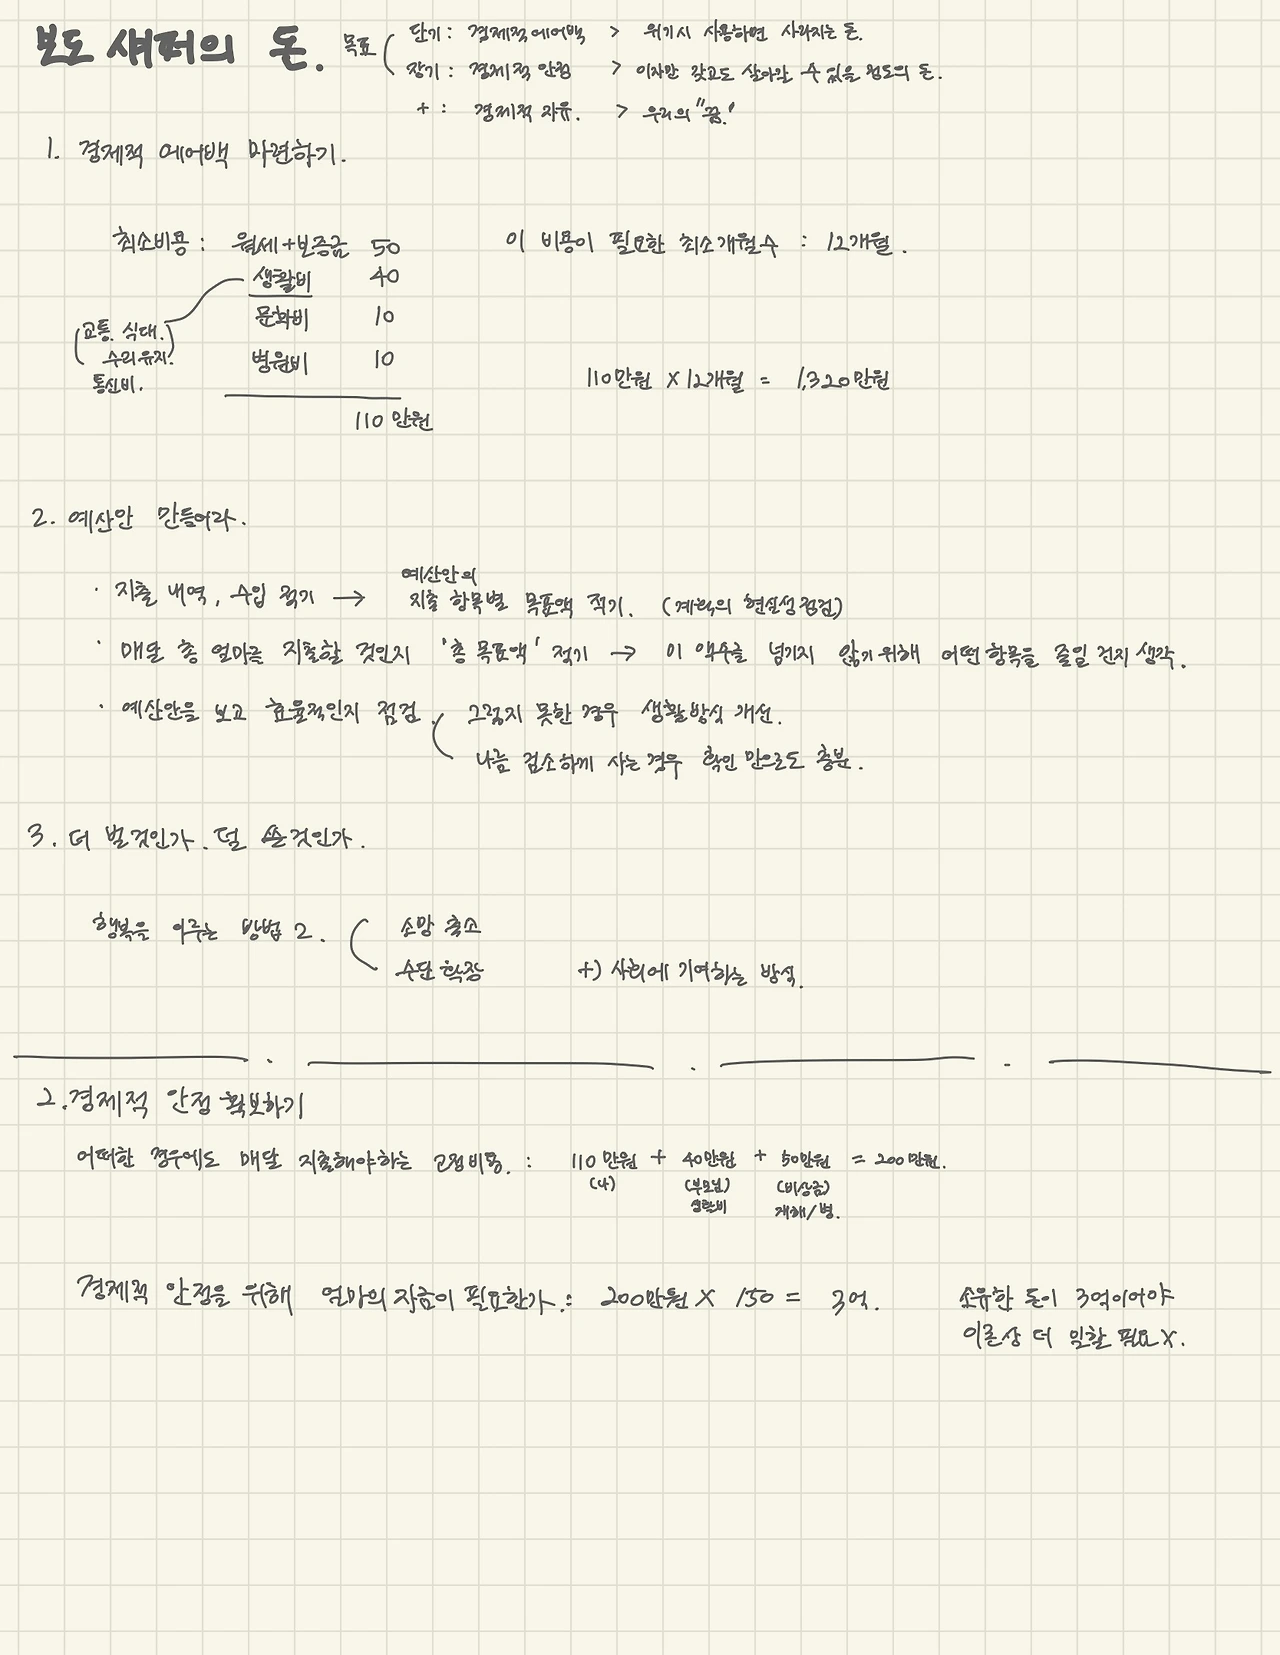 보도 섀퍼의 돈. 목표
단기: 경제적 에어백 > 위기시 사용하면 사라지는 돈.
장기: 경제적 안정 > 이자만 갖고도 살아갈 수 있을 정도의 돈.
+ : 경제적 자유. > 우리의 "꿈."
1. 경제적 에어백 마련하기.
최소비용 : 월세+보증금 50 이 비용이 필요한 최소개월수 : 12개월.
생활비 40
(교통. 식대.
수리유지.)
통신비.
문화비 10
병원비 10
110만원 X 12개월 = 1,320만원
110 만원
2. 예산안 만들어라.
· 지출 내역, 수입 적기 → 예산안의
지출 항목별 목표액 적기. (계획의 현실성 점검)
· 매달 총 얼마를 지출할 것인지 '총 목표액' 적기 → 이 액수를 넘기지 않기 위해 어떤 항목을 줄일 건지 생각.
· 예산안을 보고 효율적인지 점검. 그렇지 못한 경우 생활방식 개선.
나름 검소하게 사는 경우 확인 만으로도 충분.
3. 더 벌것인가. 덜 쓸것인가.
행복을 이루는 방법 2. 소망 축소
수단 확장 +) 사회에 기여하는 방식.
2. 경제적 안정 확보하기
어떠한 경우에도 매달 지출해야하는 고정비용. : 110 만원 + 40만원 + 50만원 = 200만원.
(나) (부모님) (비상금)
생활비 재해/병.
경제적 안정을 위해 얼마의 자금이 필요한가. : 200만원 X 150 = 3억.
소유한 돈이 3억이어야
이론상 더 일할 필요 X.